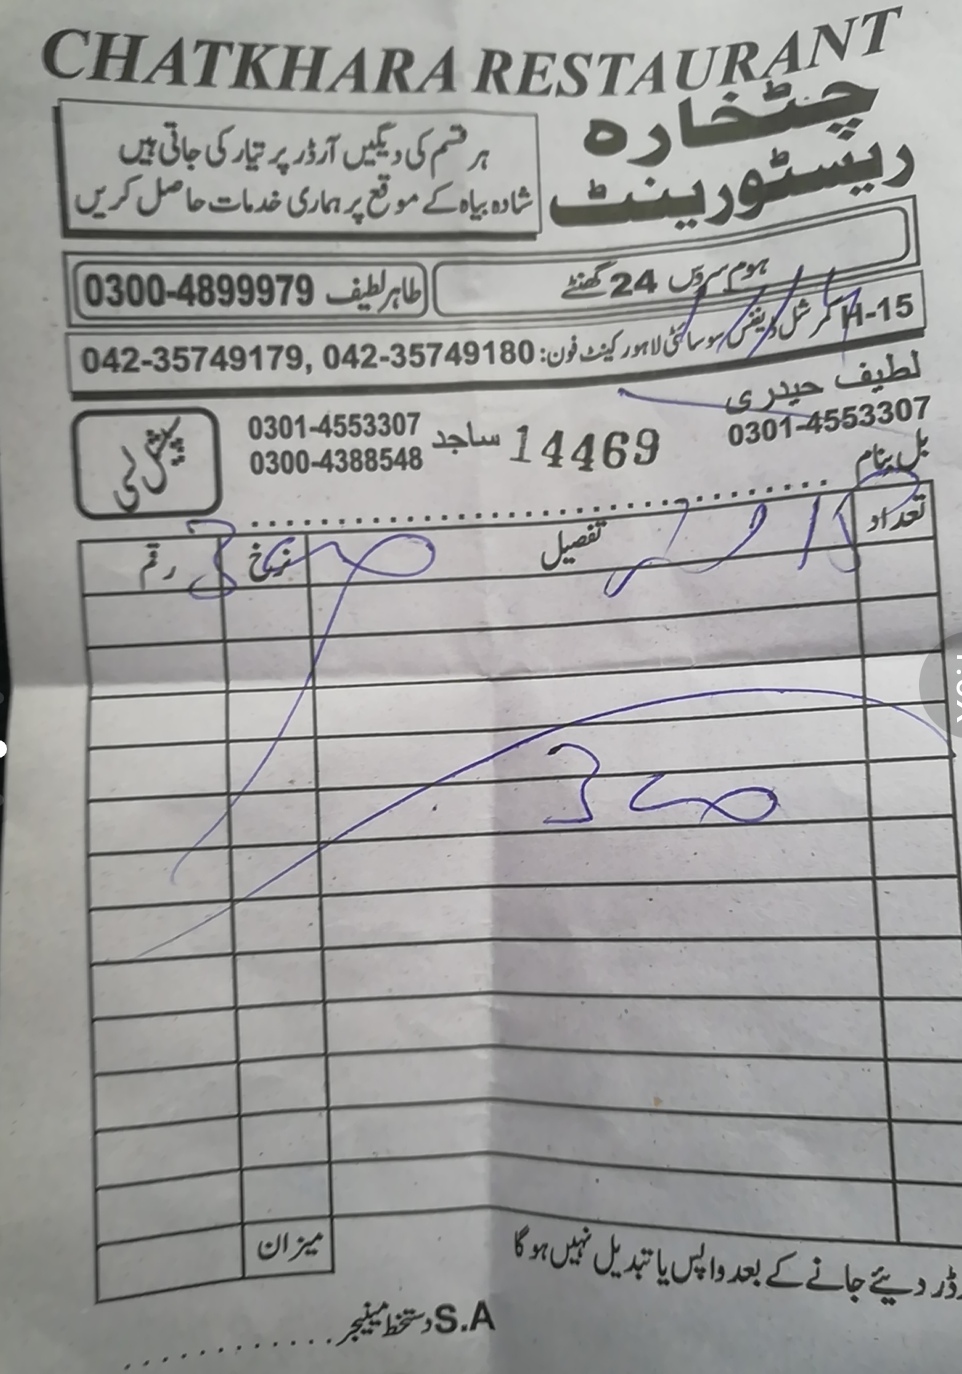 CHATKHARA RESTAURANT
چٹخارہ
ریسٹورینٹ
ہر قسم کی دیگیں آرڈر پر تیار کی جاتی ہیں
شادہ بیاہ کے موقع پر ہماری خدمات حاصل کریں
ہوم سروس 24 گھنٹے
طاہر لطیف 0300-4899979
H-15 کمرشل ڈیفنس سوسائٹی لاہور کینٹ فون: 042-35749179, 042-35749180
لطیف حیدری
0301-4553307
ساجد 0301-4553307
0300-4388548
14469
پیش لی
بل بنام
تعداد تفصیل نرخ رقم
میزان
آرڈر دیئے جانے کے بعد واپس یا تبدیل نہیں ہوگا
S.A دستخط مینیجر